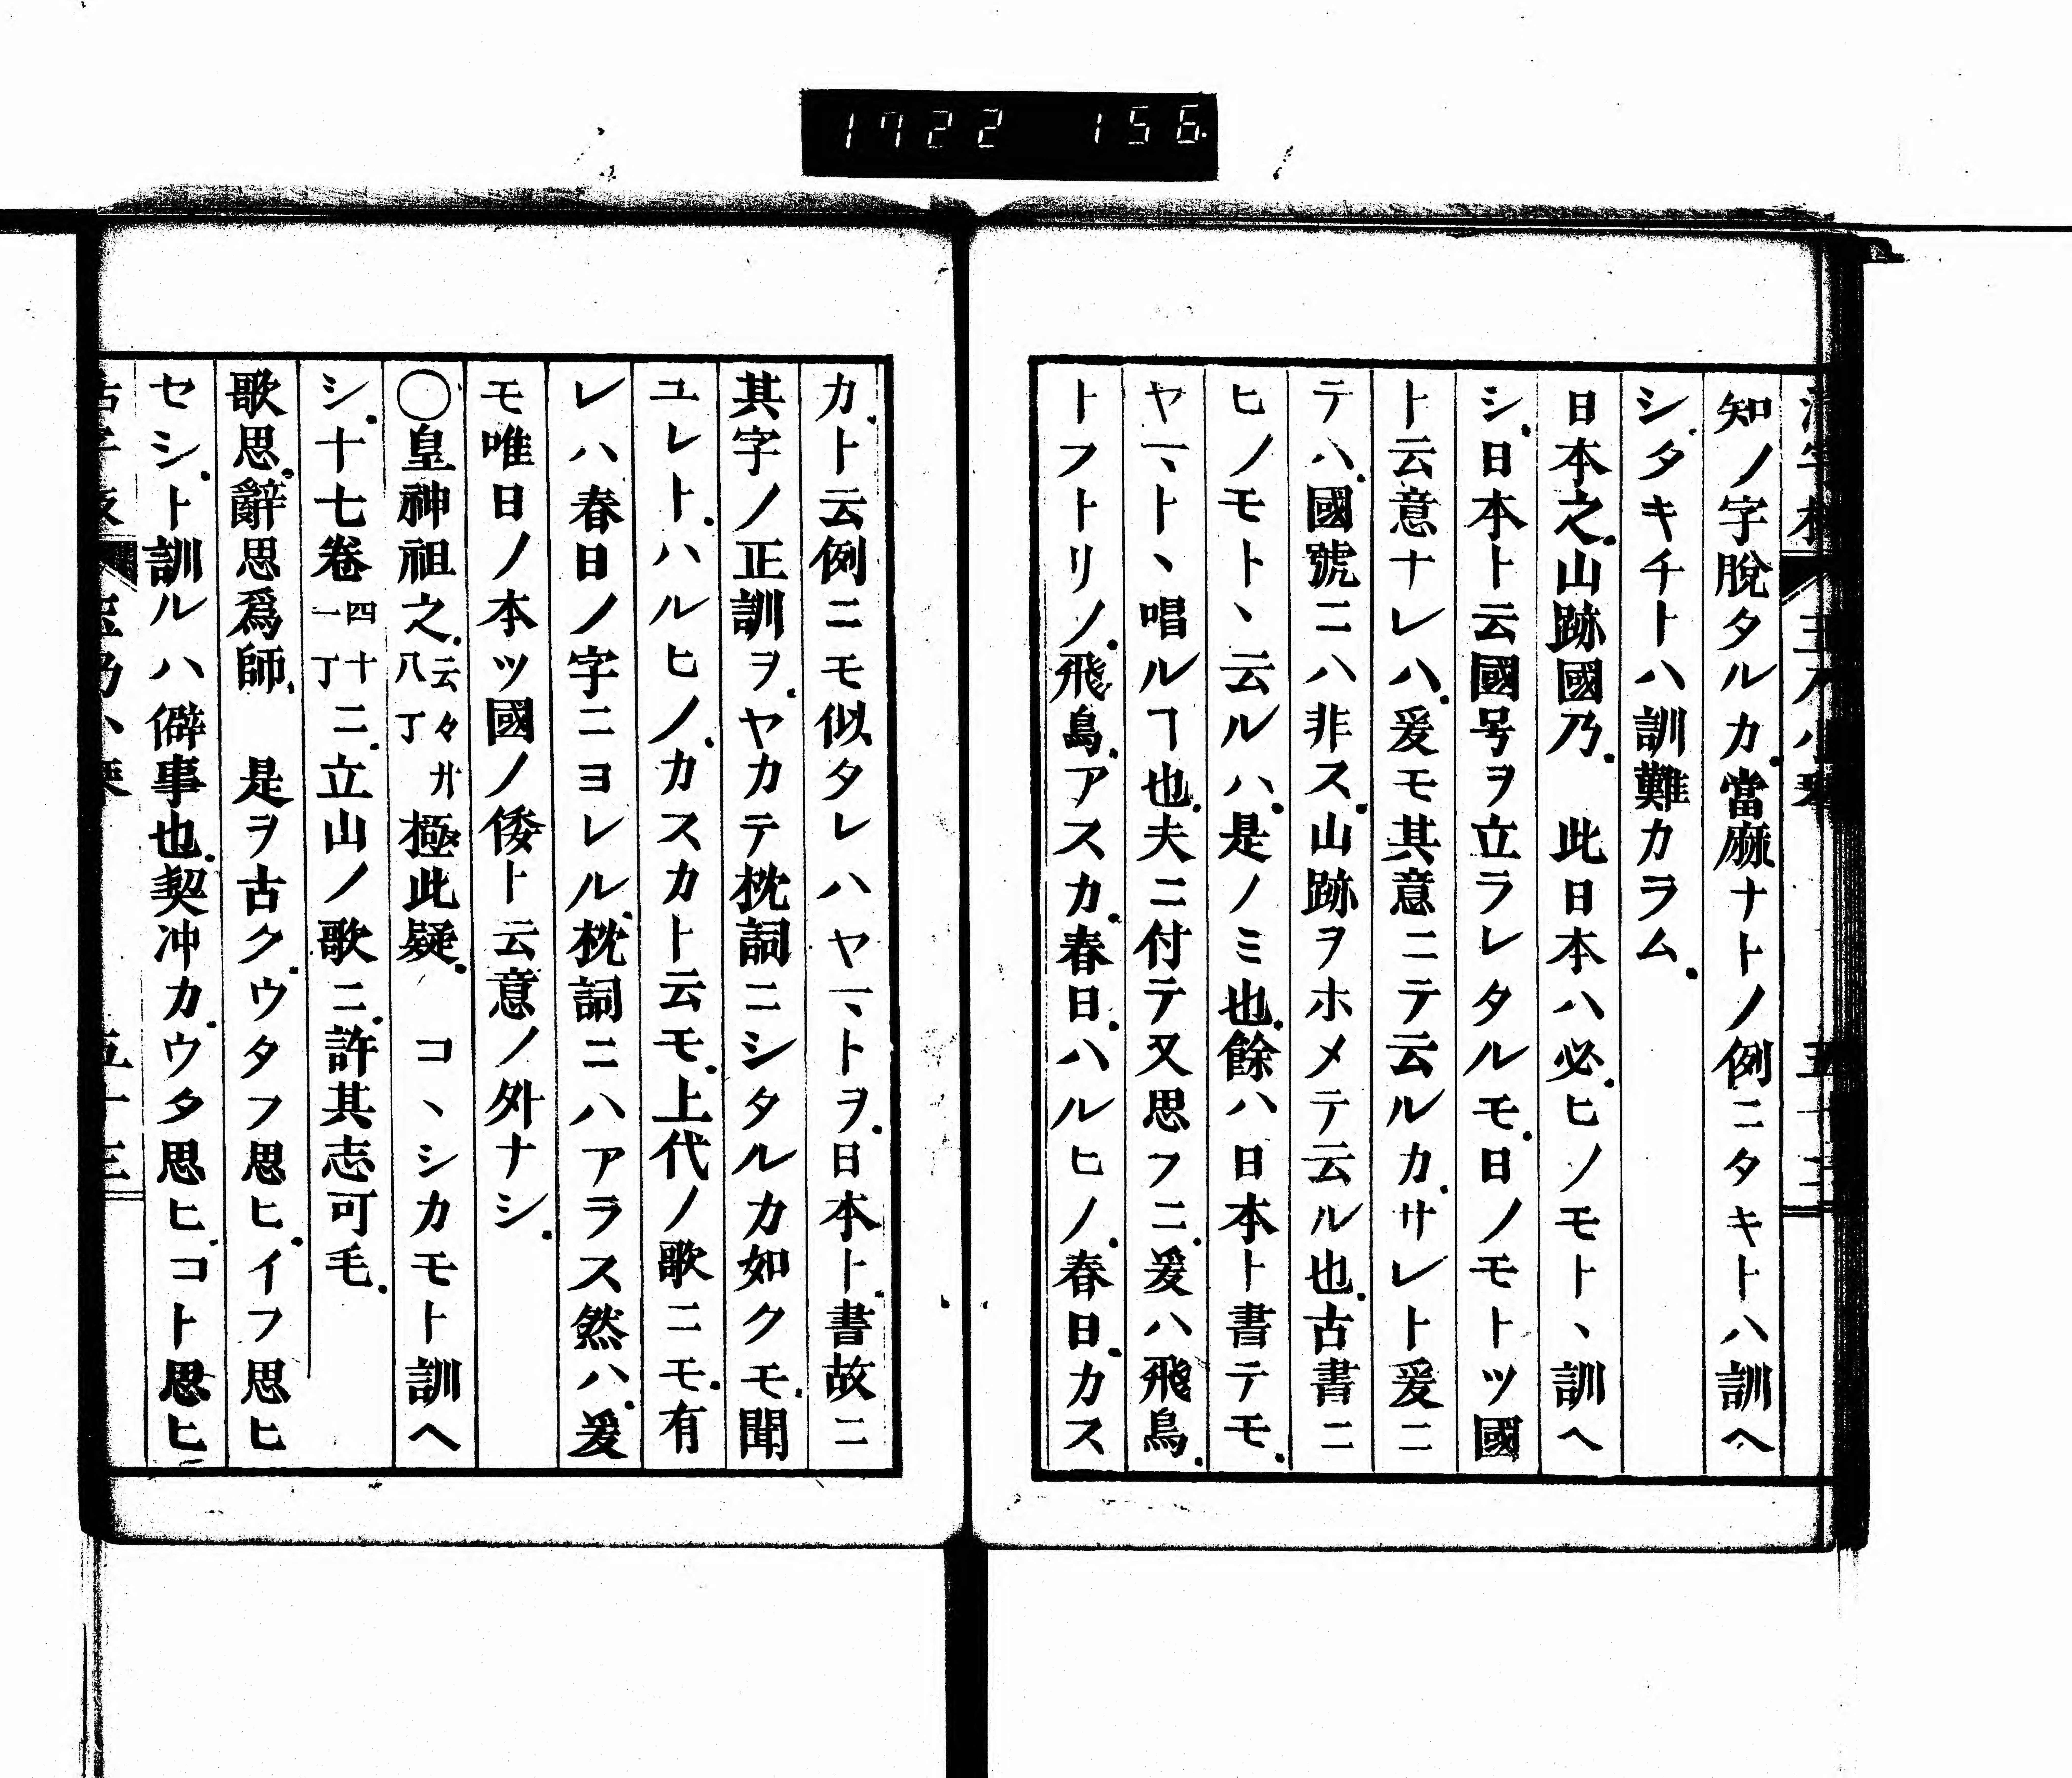 1722 156
知ノ字脫タルカ.當麻ナトノ例ニタキトハ訓ヘ
シ.タキチトハ訓難カラム.
日本之.山跡國乃.　此日本ハ必.ヒノモト、訓ヘ
シ.日本ト云國号ヲ立ラレタルモ.日ノモトツ國
ト云意ナレハ.爰モ其意ニテ云ルカ.サレト爰ニ
テハ.國號ニハ非ス.山跡ヲホメテ云ル也.古書ニ
ヒノモト、云ルハ.是ノミ也.餘ハ日本ト書テモ.
ヤマト、唱ルヿ也.夫ニ付テ又思フニ.爰ハ飛鳥.
トフトリノ.飛鳥.アスカ.春日.ハルヒノ.春日.カス
カ.ト云例ニモ似タレハヤマトヲ.日本ト.書故ニ
其字ノ正訓ヲ.ヤカテ枕詞ニシタルカ如クモ.聞
ユレト.ハルヒノ.カスカト云モ.上代ノ歌ニモ.有
レハ春日ノ字ニヨレル.枕詞ニハアラス然ハ.爰
モ唯日ノ本ツ國ノ倭ト云意ノ外ナシ.
〇皇神祖之.云々廾八丁極此疑.　コ、シカモト訓ヘ
シ.十七卷四十一丁ニ.立山ノ歌ニ.許其志可毛.
歌思.辭思爲師.　是ヲ古ク.ウタフ思ヒ.イフ思ヒ
セシ.ト訓ルハ僻事也.契冲カ.ウタ思ヒ.コト思ヒ